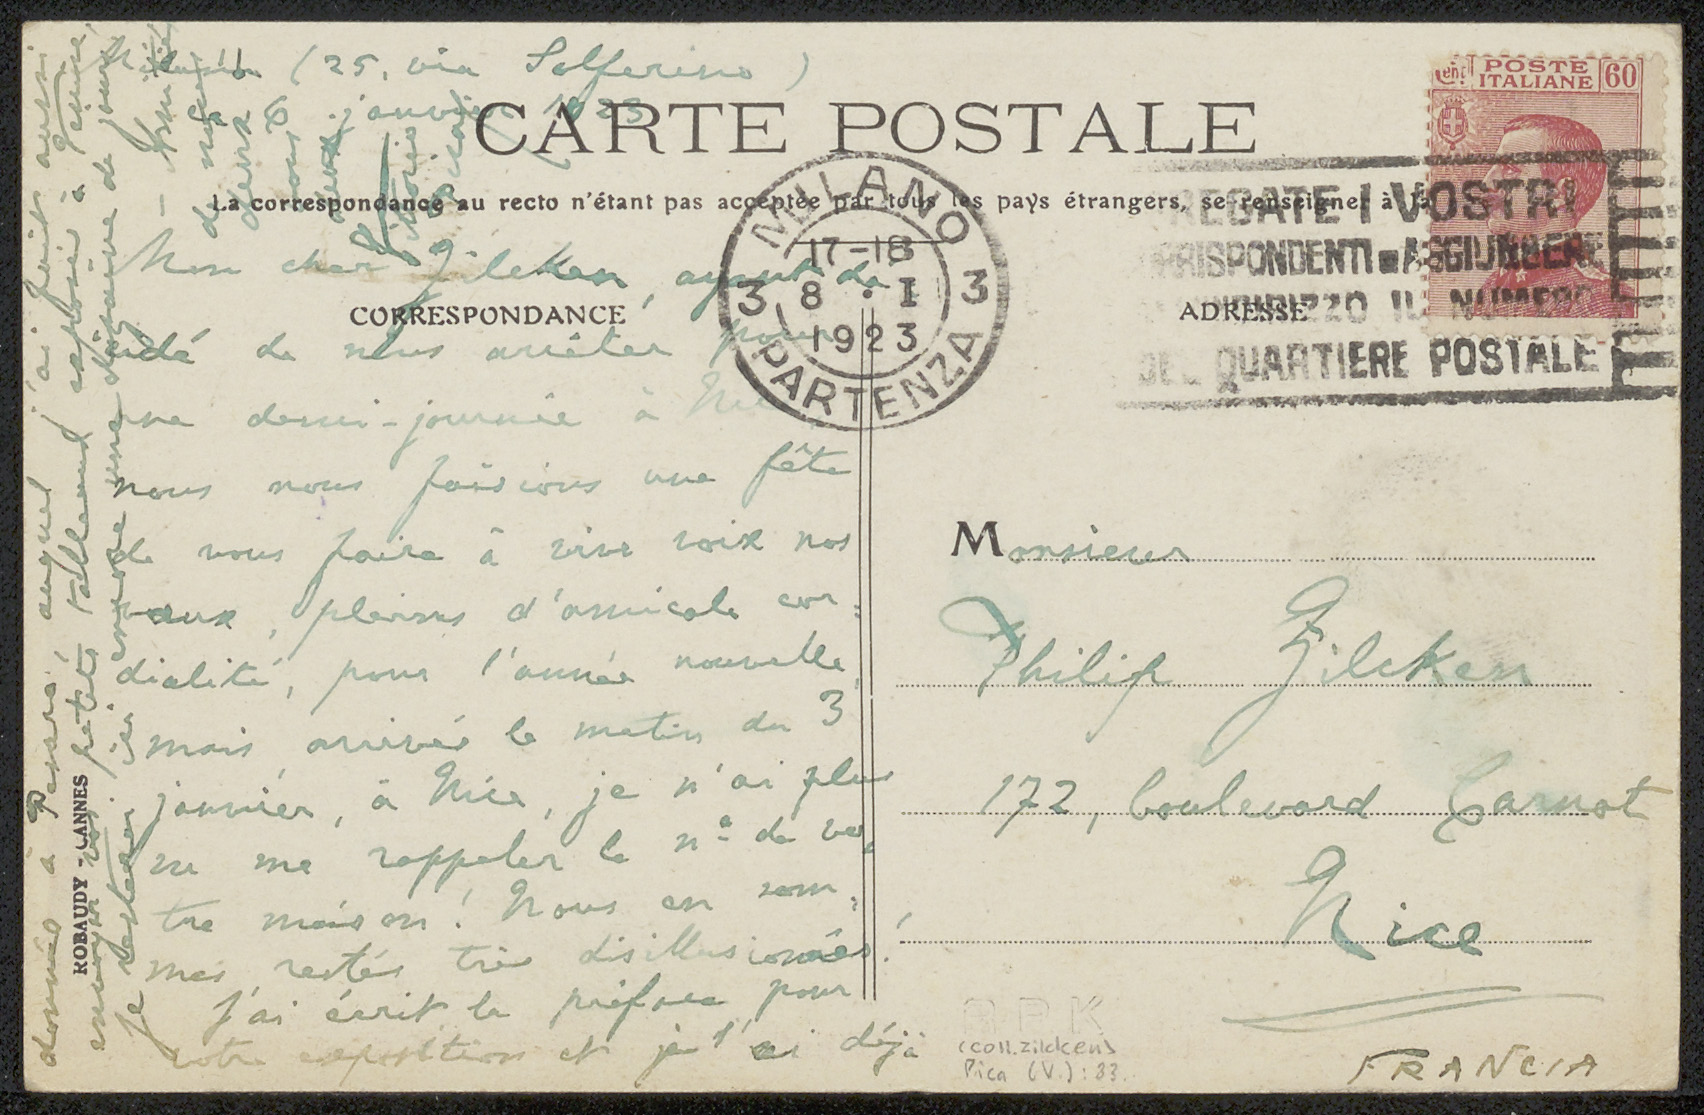 Milano (25, via Solferino)
6 janvier 1923
CARTE POSTALE
La correspondance au recto n'étant pas acceptée par tous les pays étrangers, se renseigner à la
CORRESPONDANCE
ADRESSE
Cent. POSTE ITALIANE 60
MILANO PARTENZA
17-18
3 8 · I 3
1923
REGATE I VOSTRI
RRISPONDENTI AGGIUNGERE
INDIRIZZO IL NUMERO
DEL QUARTIERE POSTALE
Mon cher Zilcken, ayant dé-
cidé de nous arrêter pour
une demi-journée à Nice
nous nous faisions une fête
de vous faire à vive voix nos
vœux, pleins d'amicale cor-
dialité, pour l'année nouvelle,
mais, arrivés le matin du 3
janvier, à Nice, je n'ai plus
su me rappeler le n° de vo-
tre maison! Nous en som-
mes restés très disillusionnés!
J'ai écrit la préface pour
votre exposition et je l'ai déjà
donnée à Pesaro, auquel j'ai fait aussi
envoyer vos petits tableaux exposés à Venise
Je resterai ici encore une dizaine de jours
Amitiés
de nous
deux à
vous
deux
Vittorio
Pica
ROBAUDY - CANNES
Monsieur
Philip Zilcken
172, boulevard Carnot
Nice
FRANCIA
RPK
(coll. zilcken)
Pica (V.): 33.